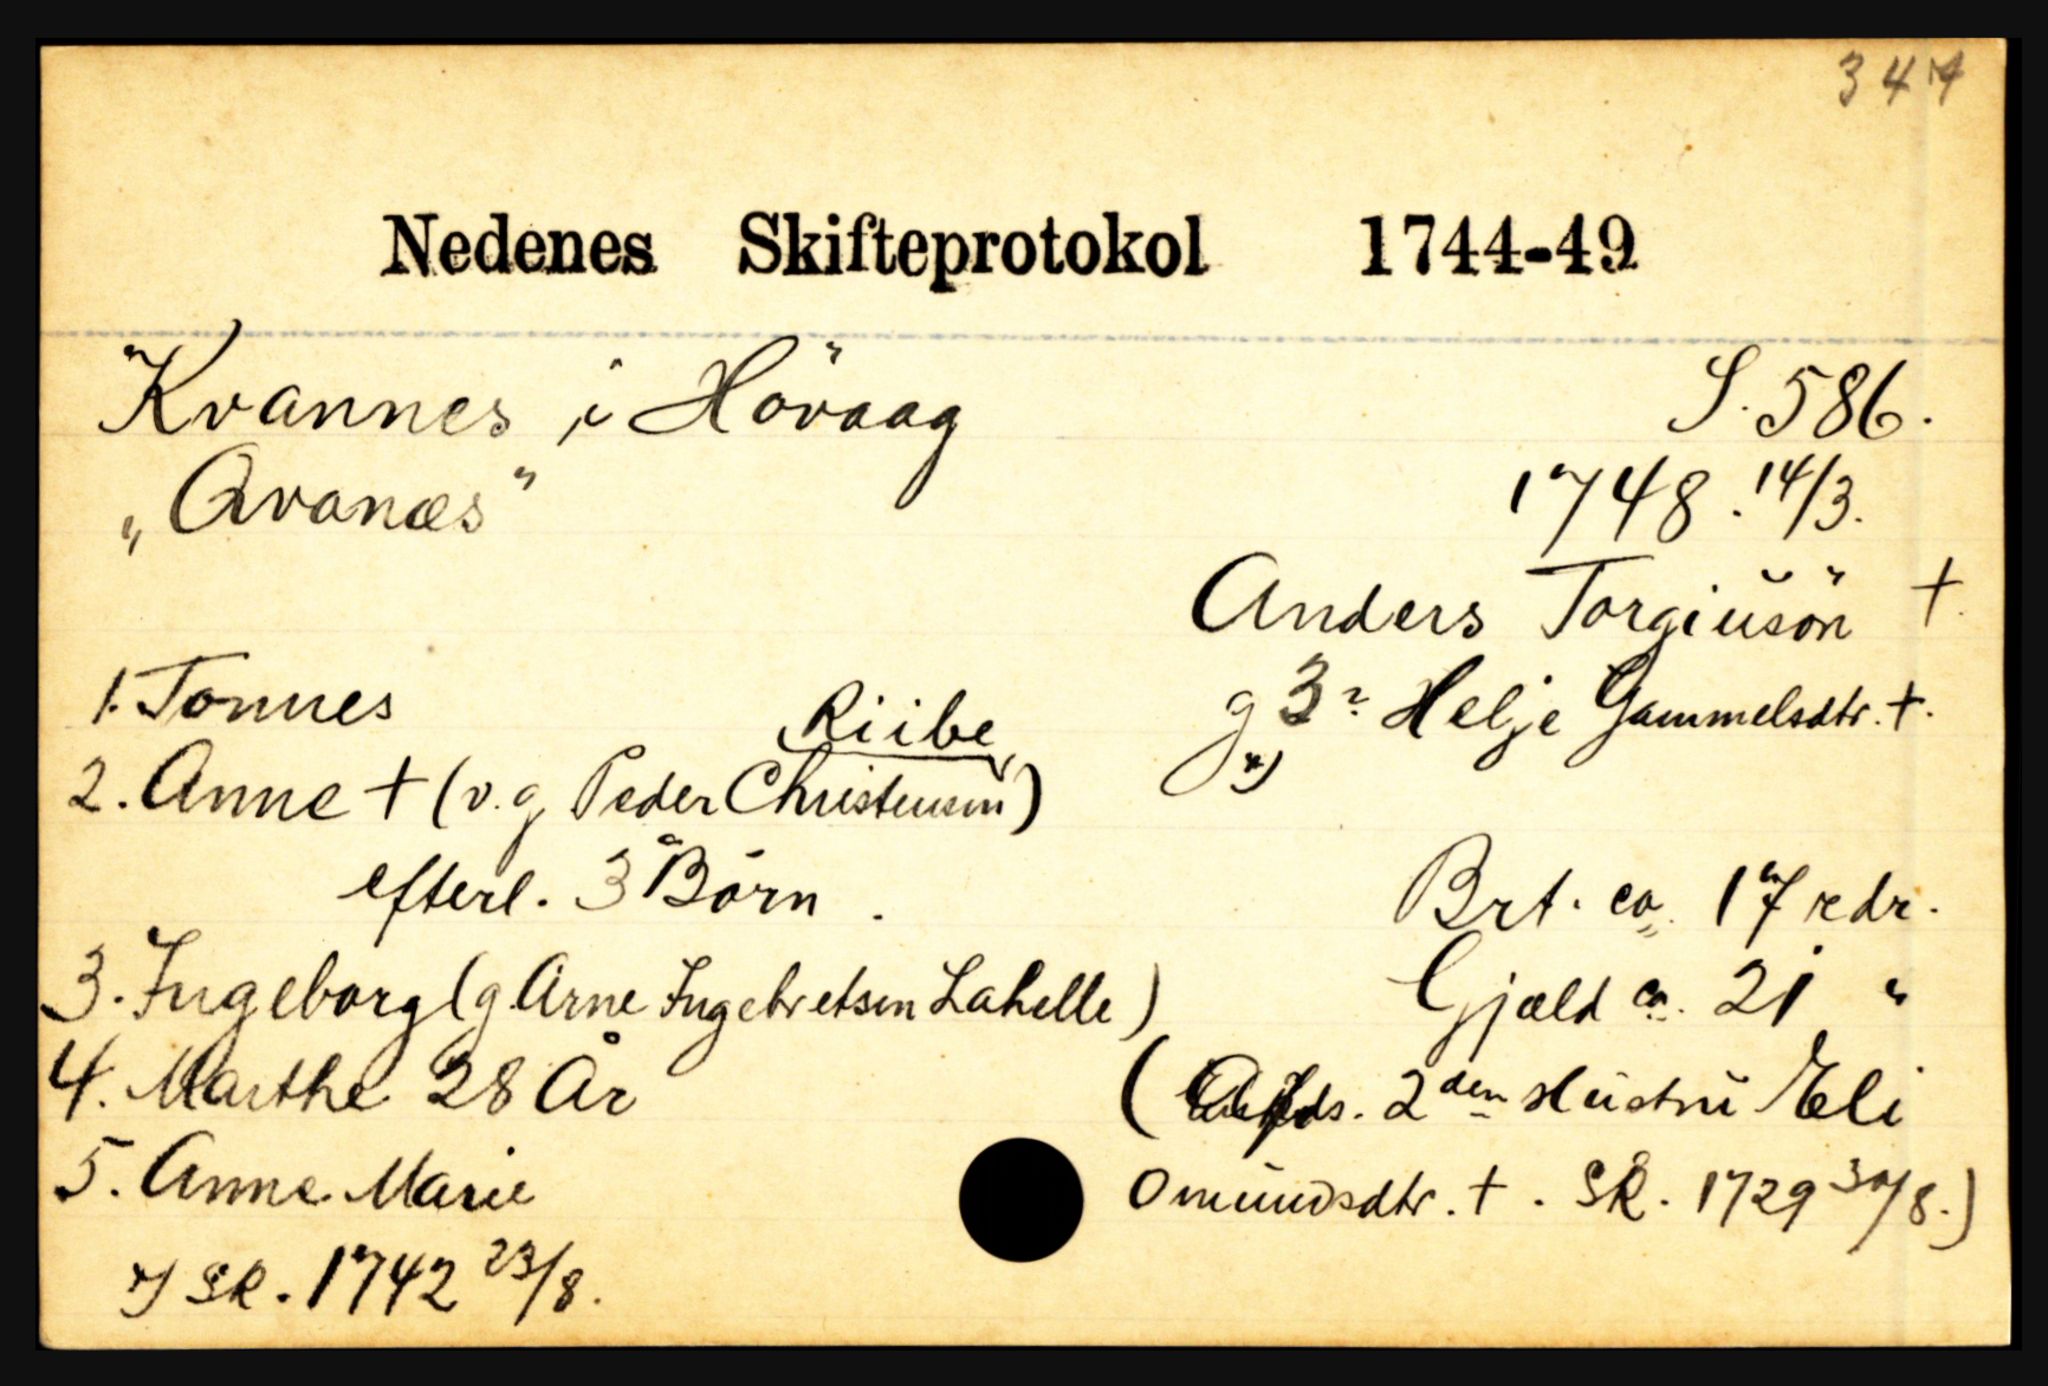 344
Nedenes Skifteprotokol 1744-49
Kvannes i Hövaag S. 586.
"Qvanæs" 1748. 14/3.
Anders Torgiusön †.
1. Tønnes g 3? Helje Gammelsdtr. †.
Riibe x)
2. Anne † (v. g Peder Christensen)
efterl. 3 Börn. Brt. ca. 17 rdr.
3. Ingeborg (g. Arne Ingebretsen Lahelle) Gjæld ca. 21 "
4. Marthe 28 År ( 2den Hustru Eli
5. Anne Marie Omundsdtr. †. Sk. 1729 30/8.)
x) Sk. 1742 23/8.